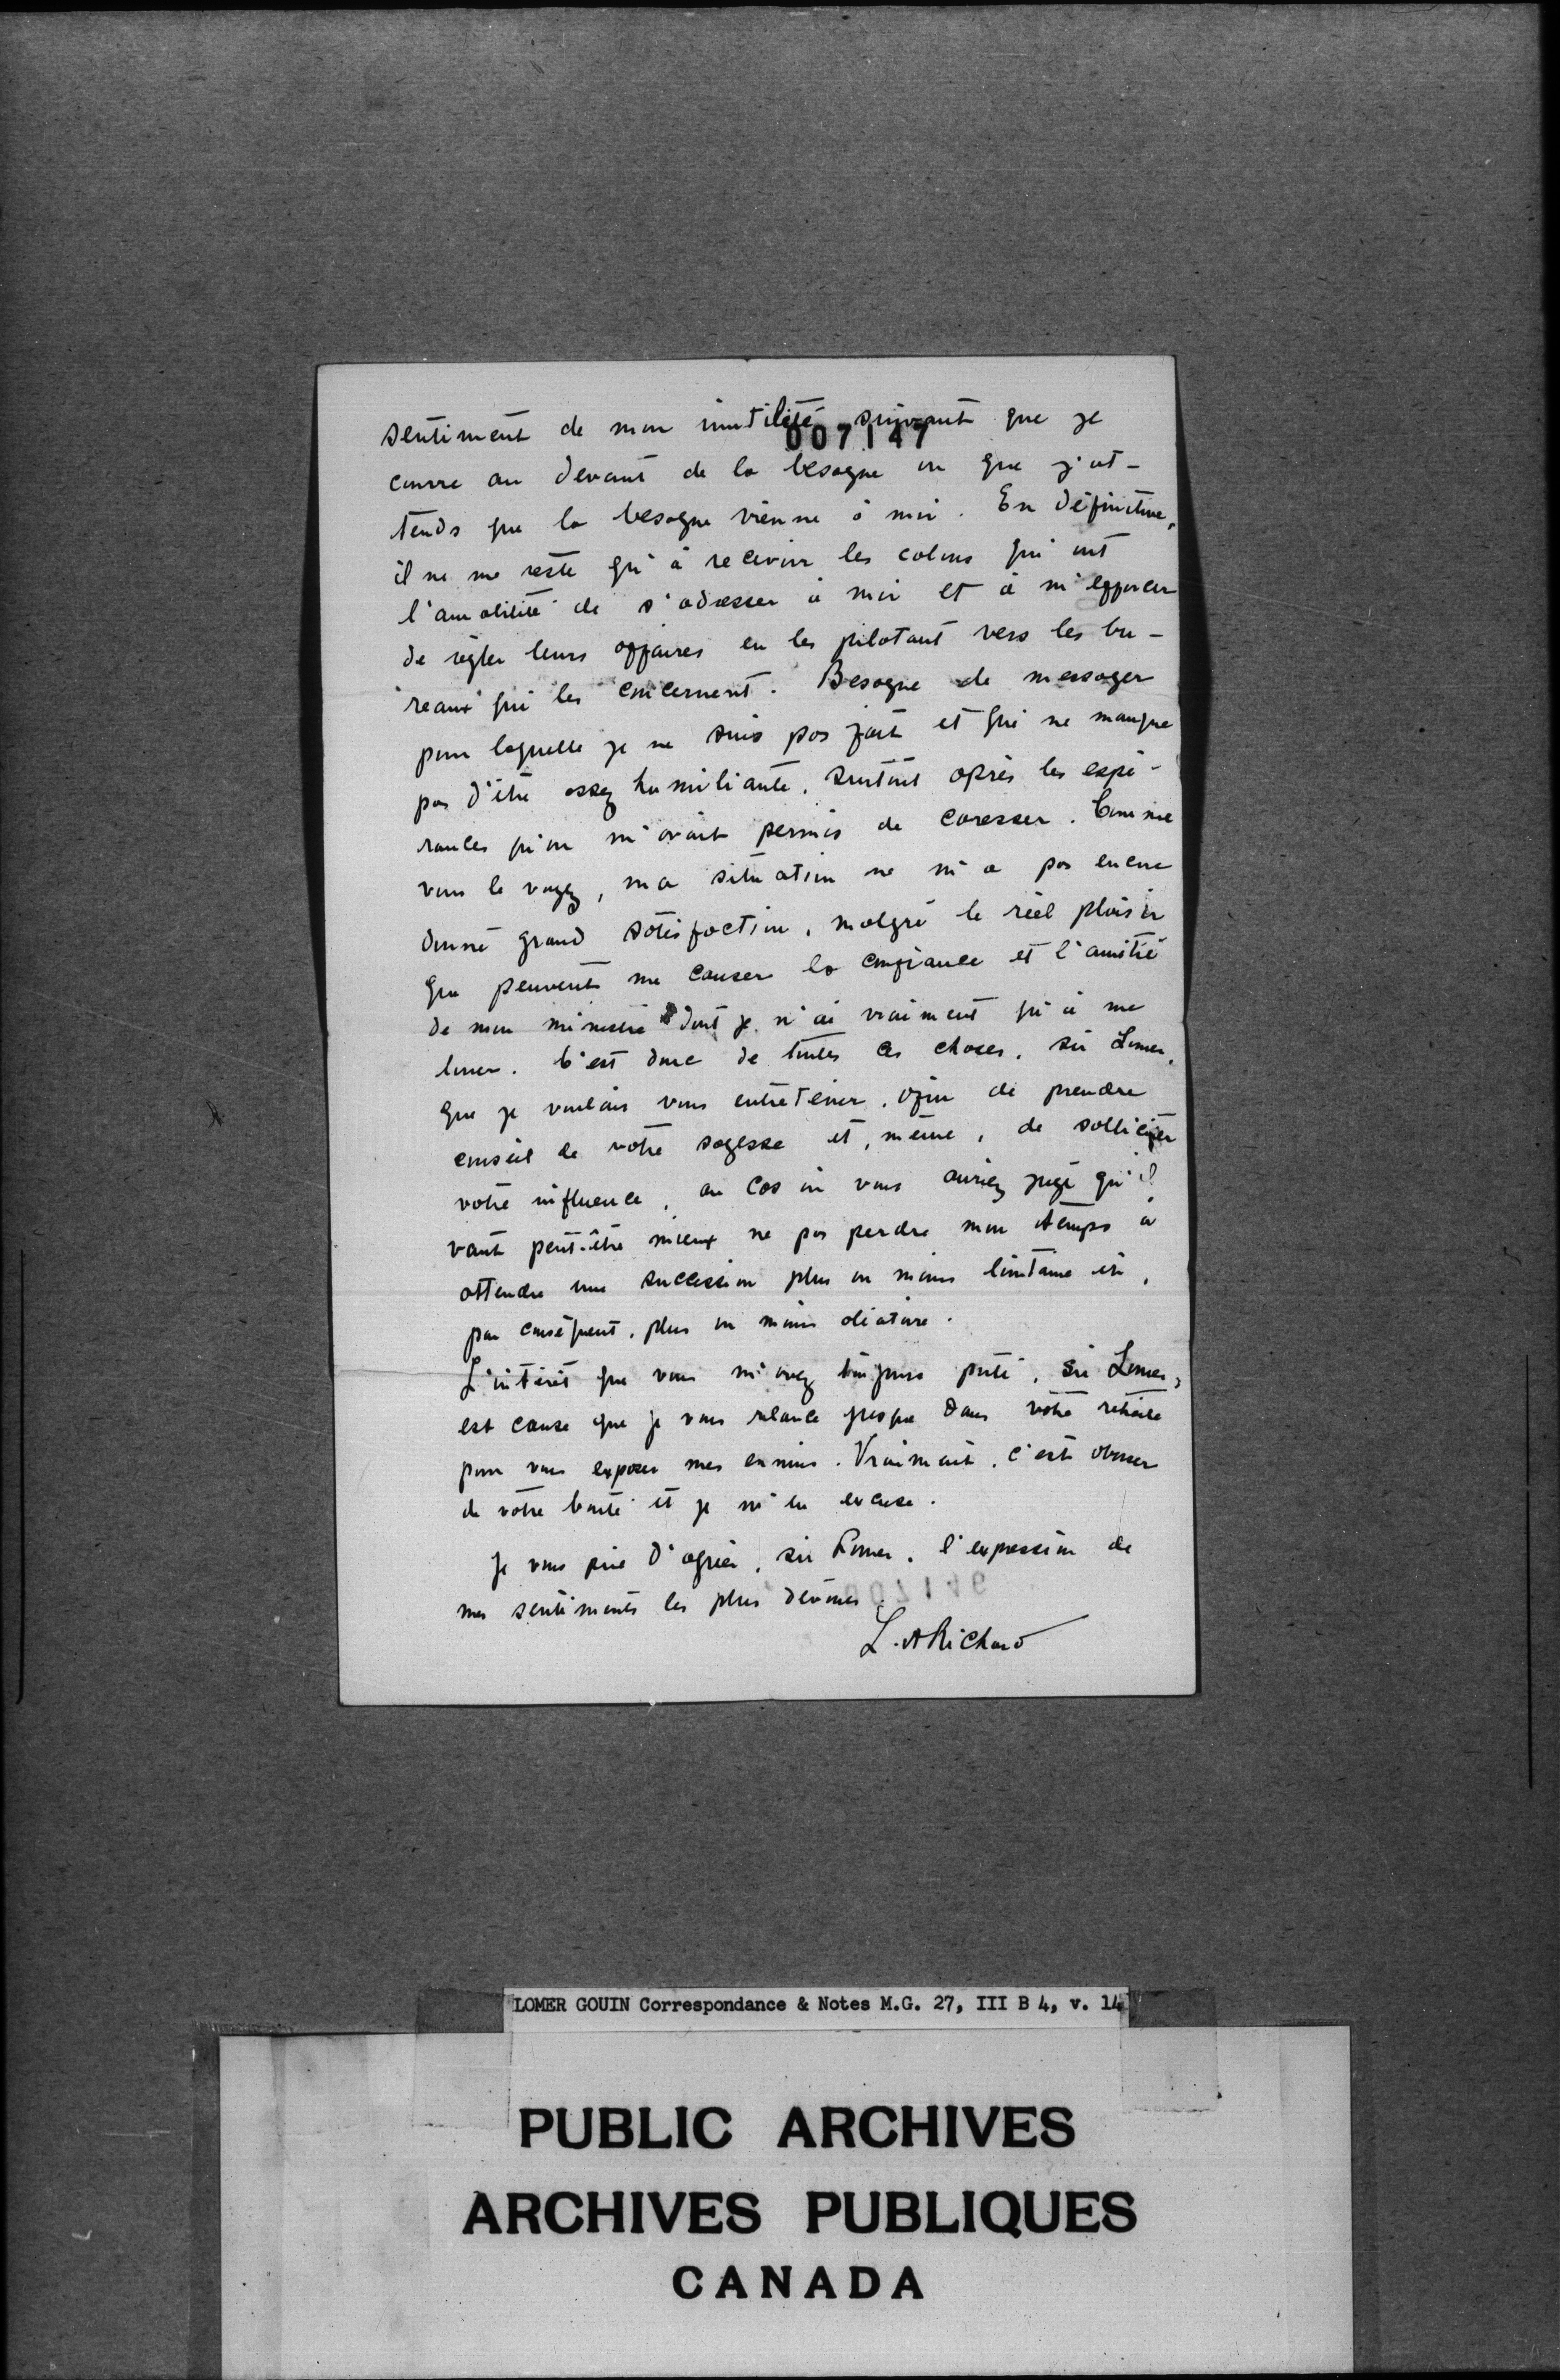 007147
sentiment de mon inutilité suivant que je
courre au devant de la besogne ou que j'at-
tends que la besogne vienne à moi. En définitive,
il ne me reste qu'à recevoir les colons qui ont
l'amabilité de s'adresser à moi et à m'efforcer
de régler leurs affaires en les pilotant vers les bu-
reaux qui les concernent. Besogne de messager
pour laquelle je ne suis pas fait et qui ne manque
pas d'être assez humiliante, surtout après les espé-
rances qu'on m'avait permis de caresser. Comme
vous le voyez, ma situation ne m'a pas encore
donné grand satisfaction, malgré le réel plaisir
que peuvent me causer la confiance et l'amitié
de mon ministre dont je n'ai vraiment qu'à me
louer. C'est donc de toutes ces choses, sir Lomer,
que je voulais vous entretenir, afin de prendre
conseil de votre sagesse et, même, de solliciter
votre influence, au cas où vous auriez jugé qu'il
vaut peut-être mieux ne pas perdre mon temps à
attendre une succession plus ou moins lointaine et,
par conséquent, plus ou moins aléatoire.
L'intérêt que vous m'avez toujours porté, sir Lomer,
est cause que je vous relance jusque dans votre retraite
pour vous exposer mes ennuis. Vraiment, c'est abuser
de votre bonté et je m'en excuse.
Je vous prie d'agréer, sir Lomer, l'expression de
mes sentiments les plus dévoués.
007146
L. A Richard
LOMER GOUIN Correspondance & Notes M.G. 27, III B 4, v. 14
PUBLIC ARCHIVES
ARCHIVES PUBLIQUES
CANADA